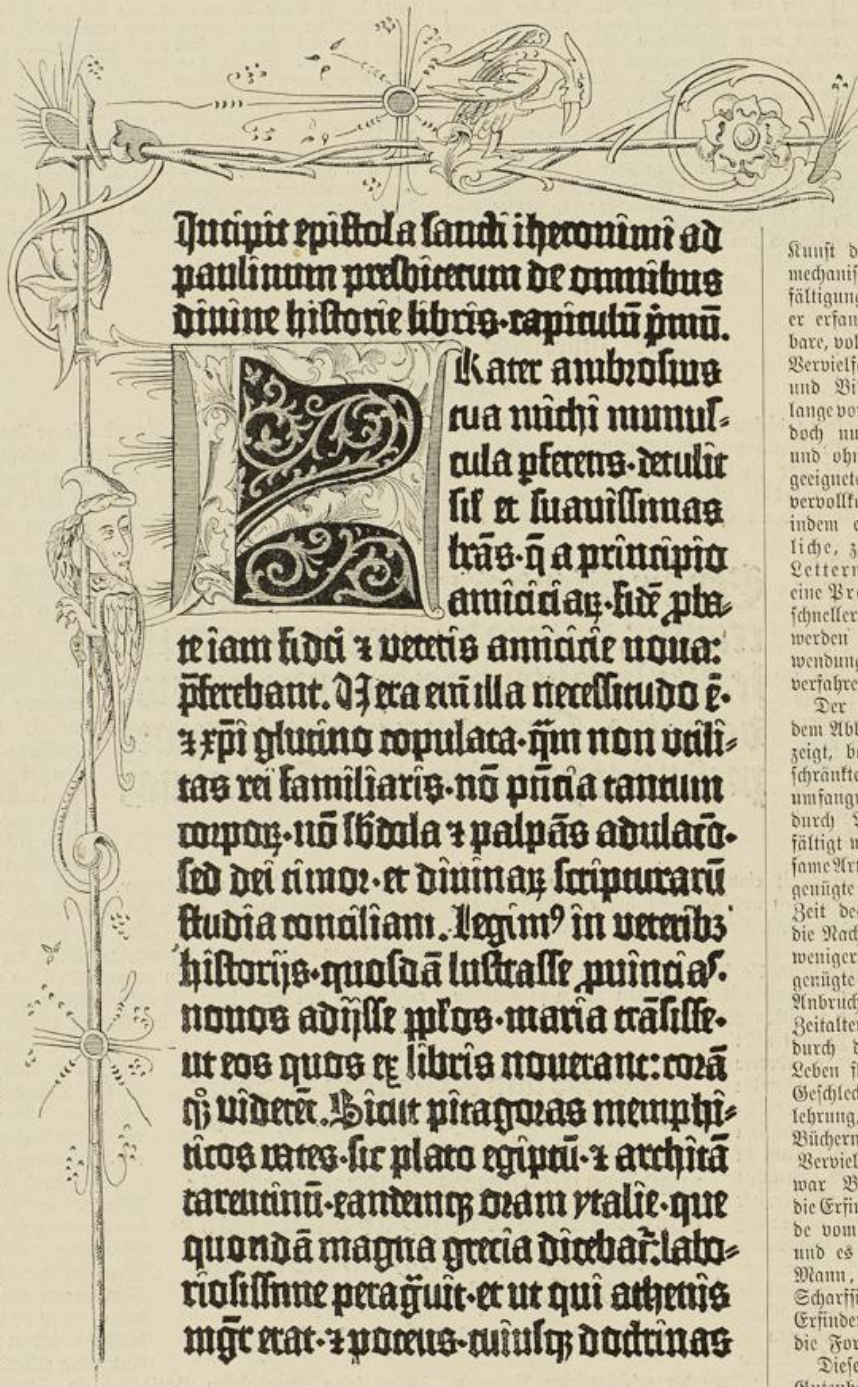 Incipit epistola sancti iheronimi ad
paulinum presbiterum de omnibus
diuine historie libris·capitulū p̄mū.
Frater ambrosius
tua michi munus-
cula pferens·detulit
sil̄ et suauissimas
lr̄as·q̄ a principio
amiciciaꝝ·fidē ꝓba-
te iam fidei ⁊ veteris amicicie noua:
p̄ferebant. Uera eni̅ illa necessitudo ē·
⁊ xp̄i glutino copulata·q̄m non vtili-
tas rei familiaris·nō pn̄tia tantum
corpoꝝ·nō sb̄dola ⁊ palpās adulacō·
sed dei timor·et diuinaꝝ scripturarū
studia conciliant. Legimꝰ in veteribꝫ
historijs·quosdā lustrasse ꝓuincias·
nouos adijsse ppl̄os·maria trāsisse·
ut eos quos ex libris nouerant: corā
qꝫ viderēt. Sicut pitagoras memphi-
ticos vates·sic plato egiptū·⁊ architā
tarentinū·eandemqꝫ oram ytalie·que
quondā magna grecia dicebat̄: labo-
riosissime peragrauit·et ut qui athenis
mgr̄ erat·⁊ potens·cuiusqꝫ doctrinas
Kunst d
mechanis
fältigung
er erfan
bare, vol
Vervielf
und Bi
lange vo
doch nu
und oh
geeignet
vervollk
indem
liche, z
Lettern
eine Pre
schneller
werden
wendung
verfahre
Der
dem Abl
zeigt, b
schränkte
umfangr
durch
fältigt w
same Art
genügte
Zeit de
die Nach
weniger
genügte
Anbruch
Zeitalter
durch d
Leben f
Geschlech
lehrung,
Büchern
Verviel
war B
die Erfin
de vom
und es
Mann,
Scharfsi
Erfinder
die For
Diese